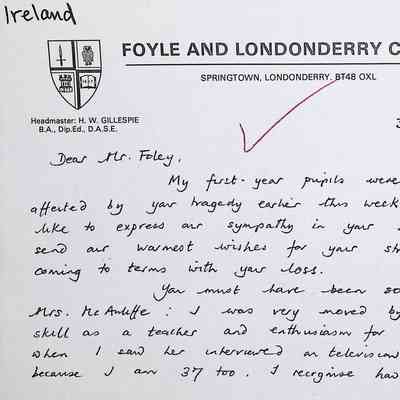 Ireland
FOYLE AND LONDONDERRY C
SPRINGTOWN, LONDONDERRY. BT48 OXL
Headmaster: H. W. GILLESPIE
B.A., Dip.Ed., D.A.S.E.
3
Dear Mr. Foley,
My first-year pupils were
affected by your tragedy earlier this week
like to express our sympathy in your
send our warmest wishes for your st
coming to terms with your loss.
You must have been so
Mrs. McAuliffe: I was very moved by
skill as a teacher and enthusiasm for
when I saw her interviewed on television
because I am 37 too. I recognise had